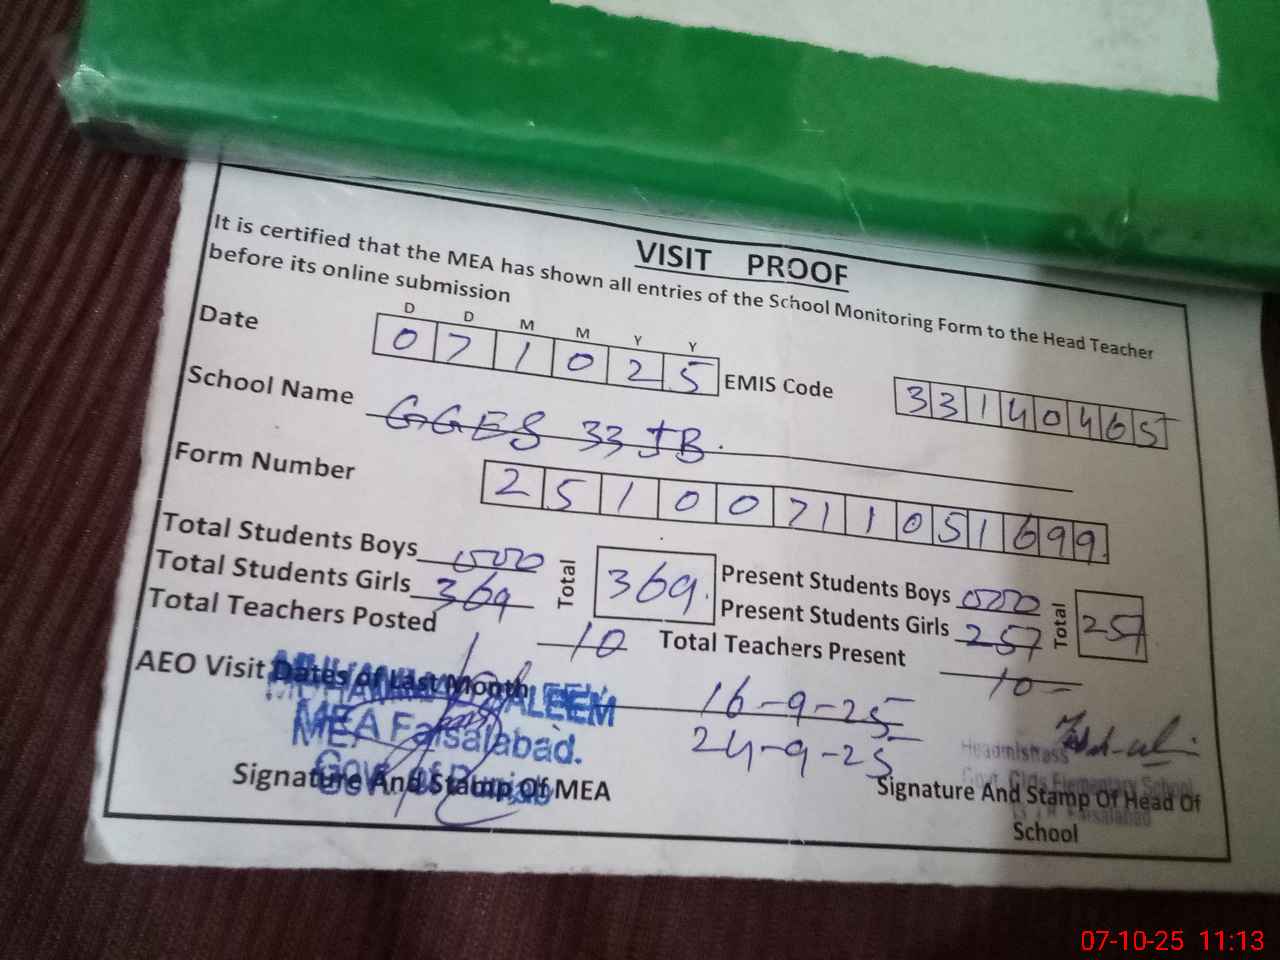 VISIT PROOF
It is certified that the MEA has shown all entries of the School Monitoring Form to the Head Teacher
before its online submission
D D M M Y Y
Date 07 10 25 EMIS Code 33140465
School Name GGES 33 JB.
Form Number 25100711051699
Total Students Boys 000 Total 369 Present Students Boys 000 Total 257
Total Students Girls 369 Present Students Girls 257
Total Teachers Posted 10 Total Teachers Present 10
AEO Visit Dates of Last Month 16-9-25
24-9-25
ALEEM
MEA Faisalabad.
Gov. of Punjab
Signature And Stamp Of MEA
Headmistress
Govt. Girls Elementary School
Faisalabad
Signature And Stamp Of Head Of
School
07-10-25 11:13